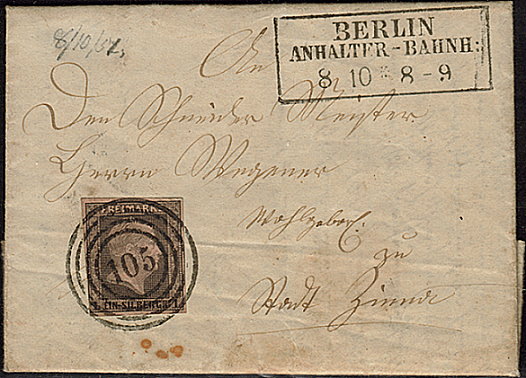 8/10/51.
BERLIN
ANHALTER-BAHNH:
8 10 * 8-9
An
Den Schneider Meister
Herrn Wegener
Wohlgeborl.
zu
Stadt Zinna
FREIMARKE
105
EIN-SILBERGR.